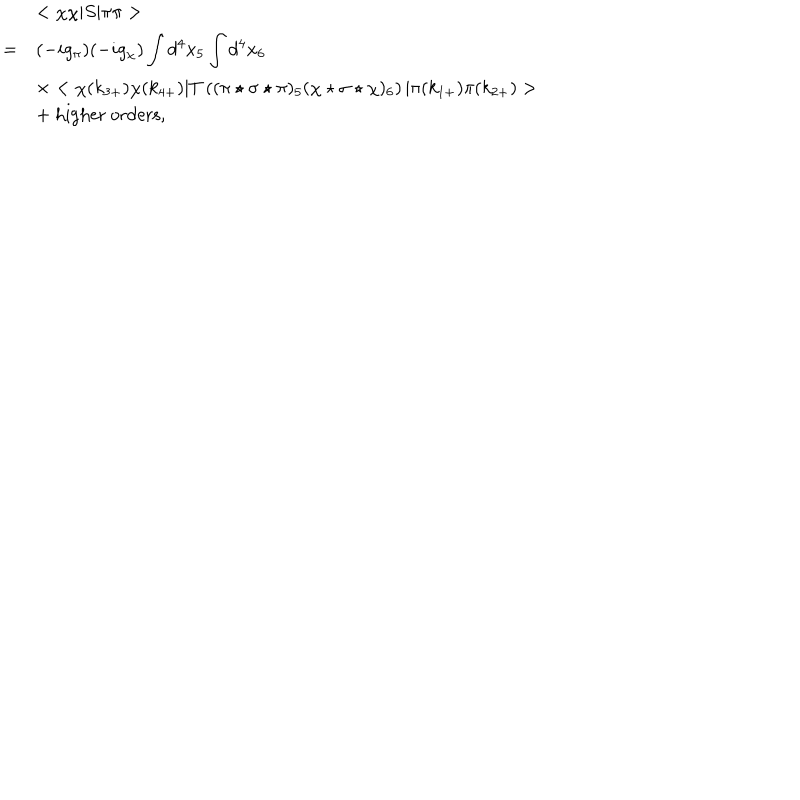 < χχ|S|ππ >
= (−ig_π)(−ig_χ) ∫ d⁴x₅ ∫ d⁴x₆
× < χ(k₃₊)χ(k₄₊)|T ((π ⋆ σ ⋆ π)₅(χ ⋆ σ ⋆ χ)₆) |π(k₁₊)π(k₂₊) >
+ higher orders,